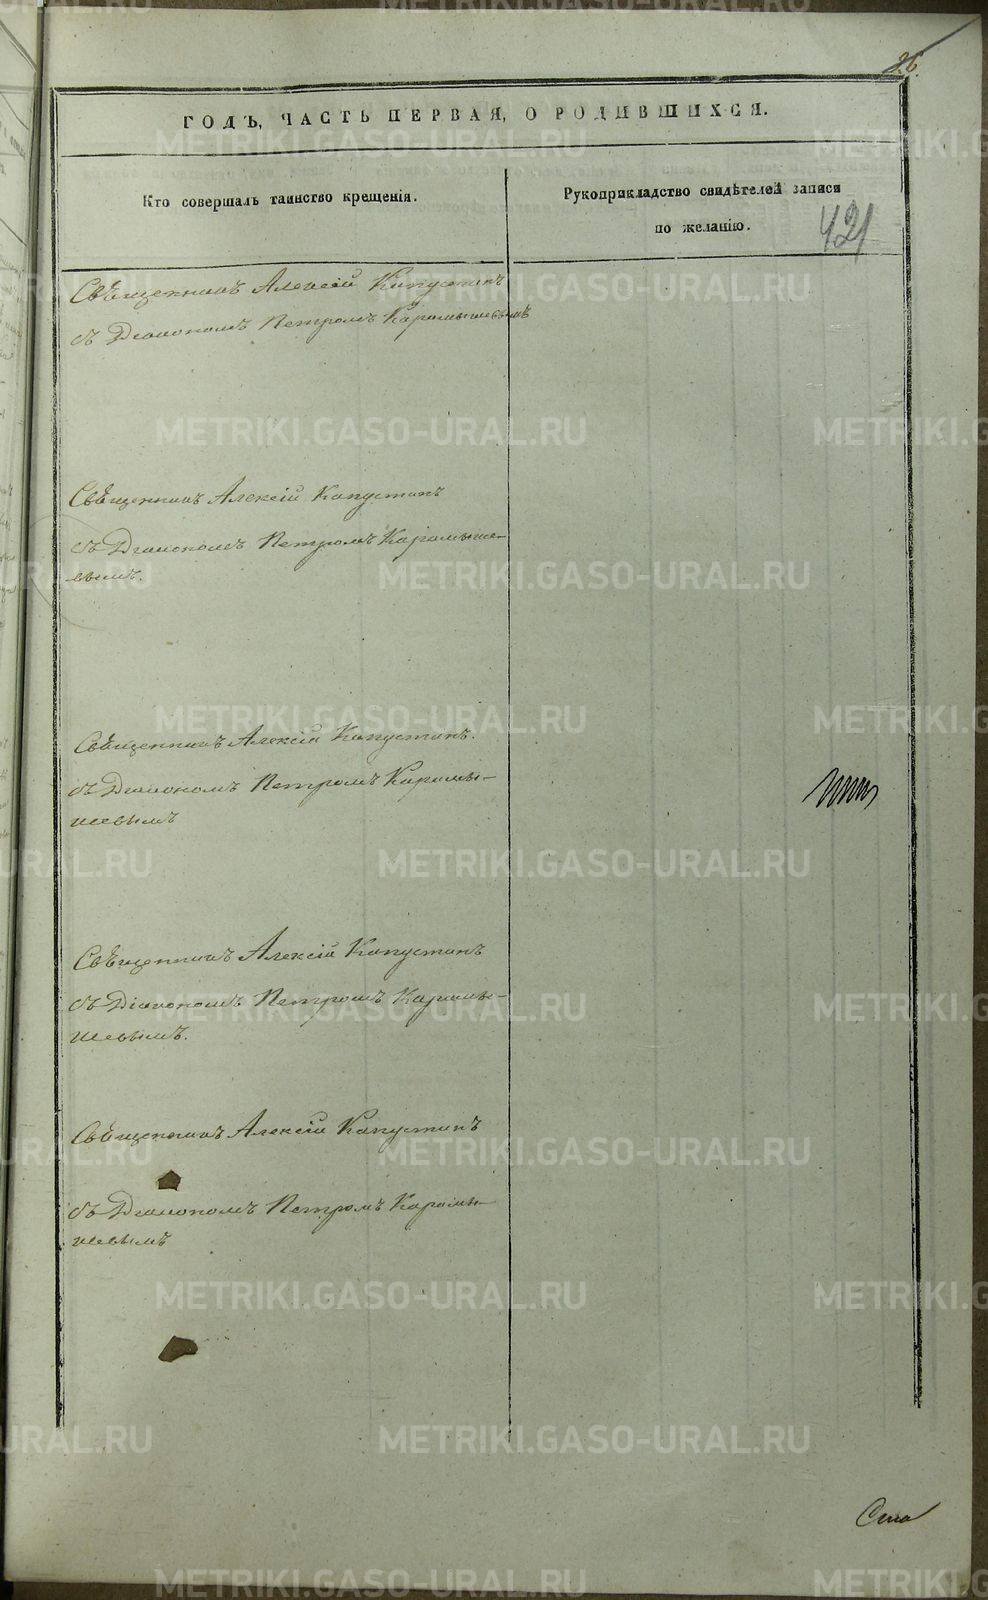 26.
ГОДЪ, ЧАСТЬ ПЕРВАЯ, О РОДИВШИХСЯ.
Кто совершалъ таинство крещенія.
Рукоприкладство свидѣтелей записи
по желанію.
421
Священникъ Алексій Капустинъ
съ Діакономъ Петромъ Карамышевымъ
Священникъ Алексій Капустинъ
съ Діакономъ Петромъ Карамыше-
вымъ.
Священникъ Алексій Капустинъ.
съ Діакономъ Петромъ Карамы-
шевымъ
Священникъ Алексій Капустинъ
съ Діакономъ Петромъ Карамы-
шевымъ.
Священникъ Алексій Капустинъ
съ Діакономъ Петромъ Карамы-
шевымъ
METRIKI.GASO-URAL.RU